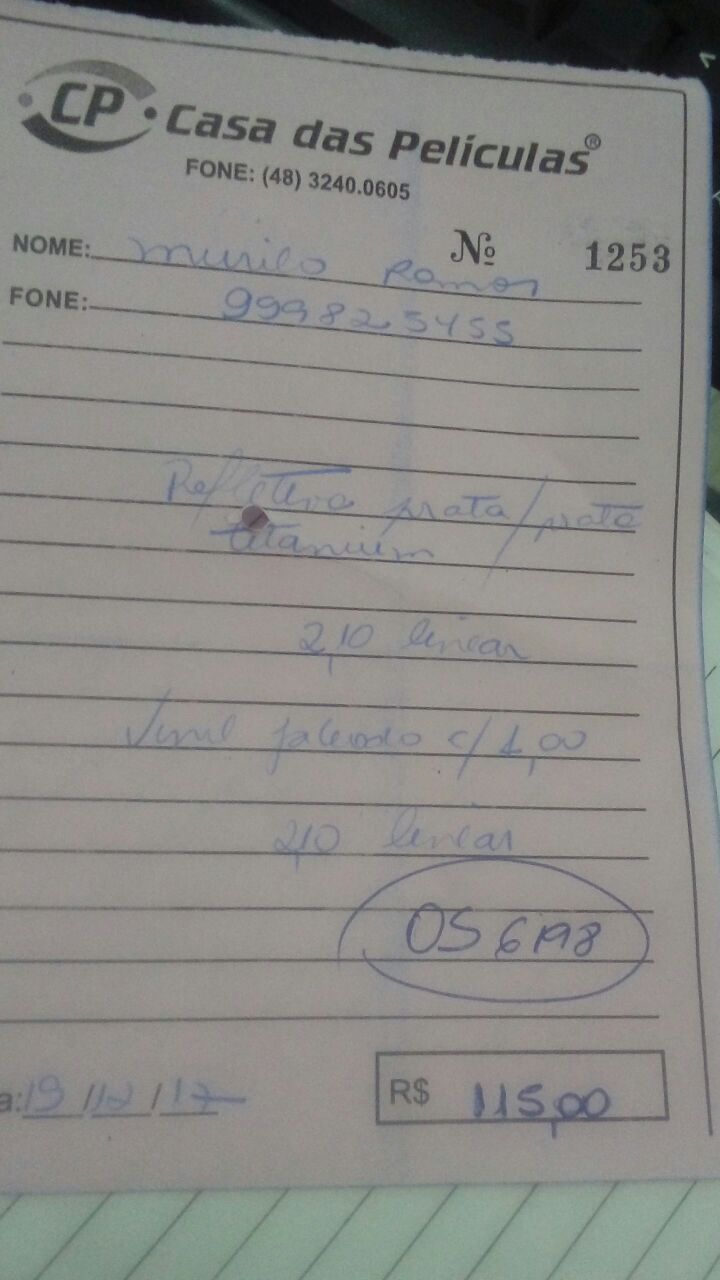 CP • Casa das Películas®
FONE: (48) 3240.0605
Nº 1253
NOME: Murilo Ramos
FONE: 999825455
Refletivo prata/prata
titanium
2,10 linear
Vinil jateado c/ 1,00
2,10 linear
OS 6198
a: 19/12/17
R$ 115,00